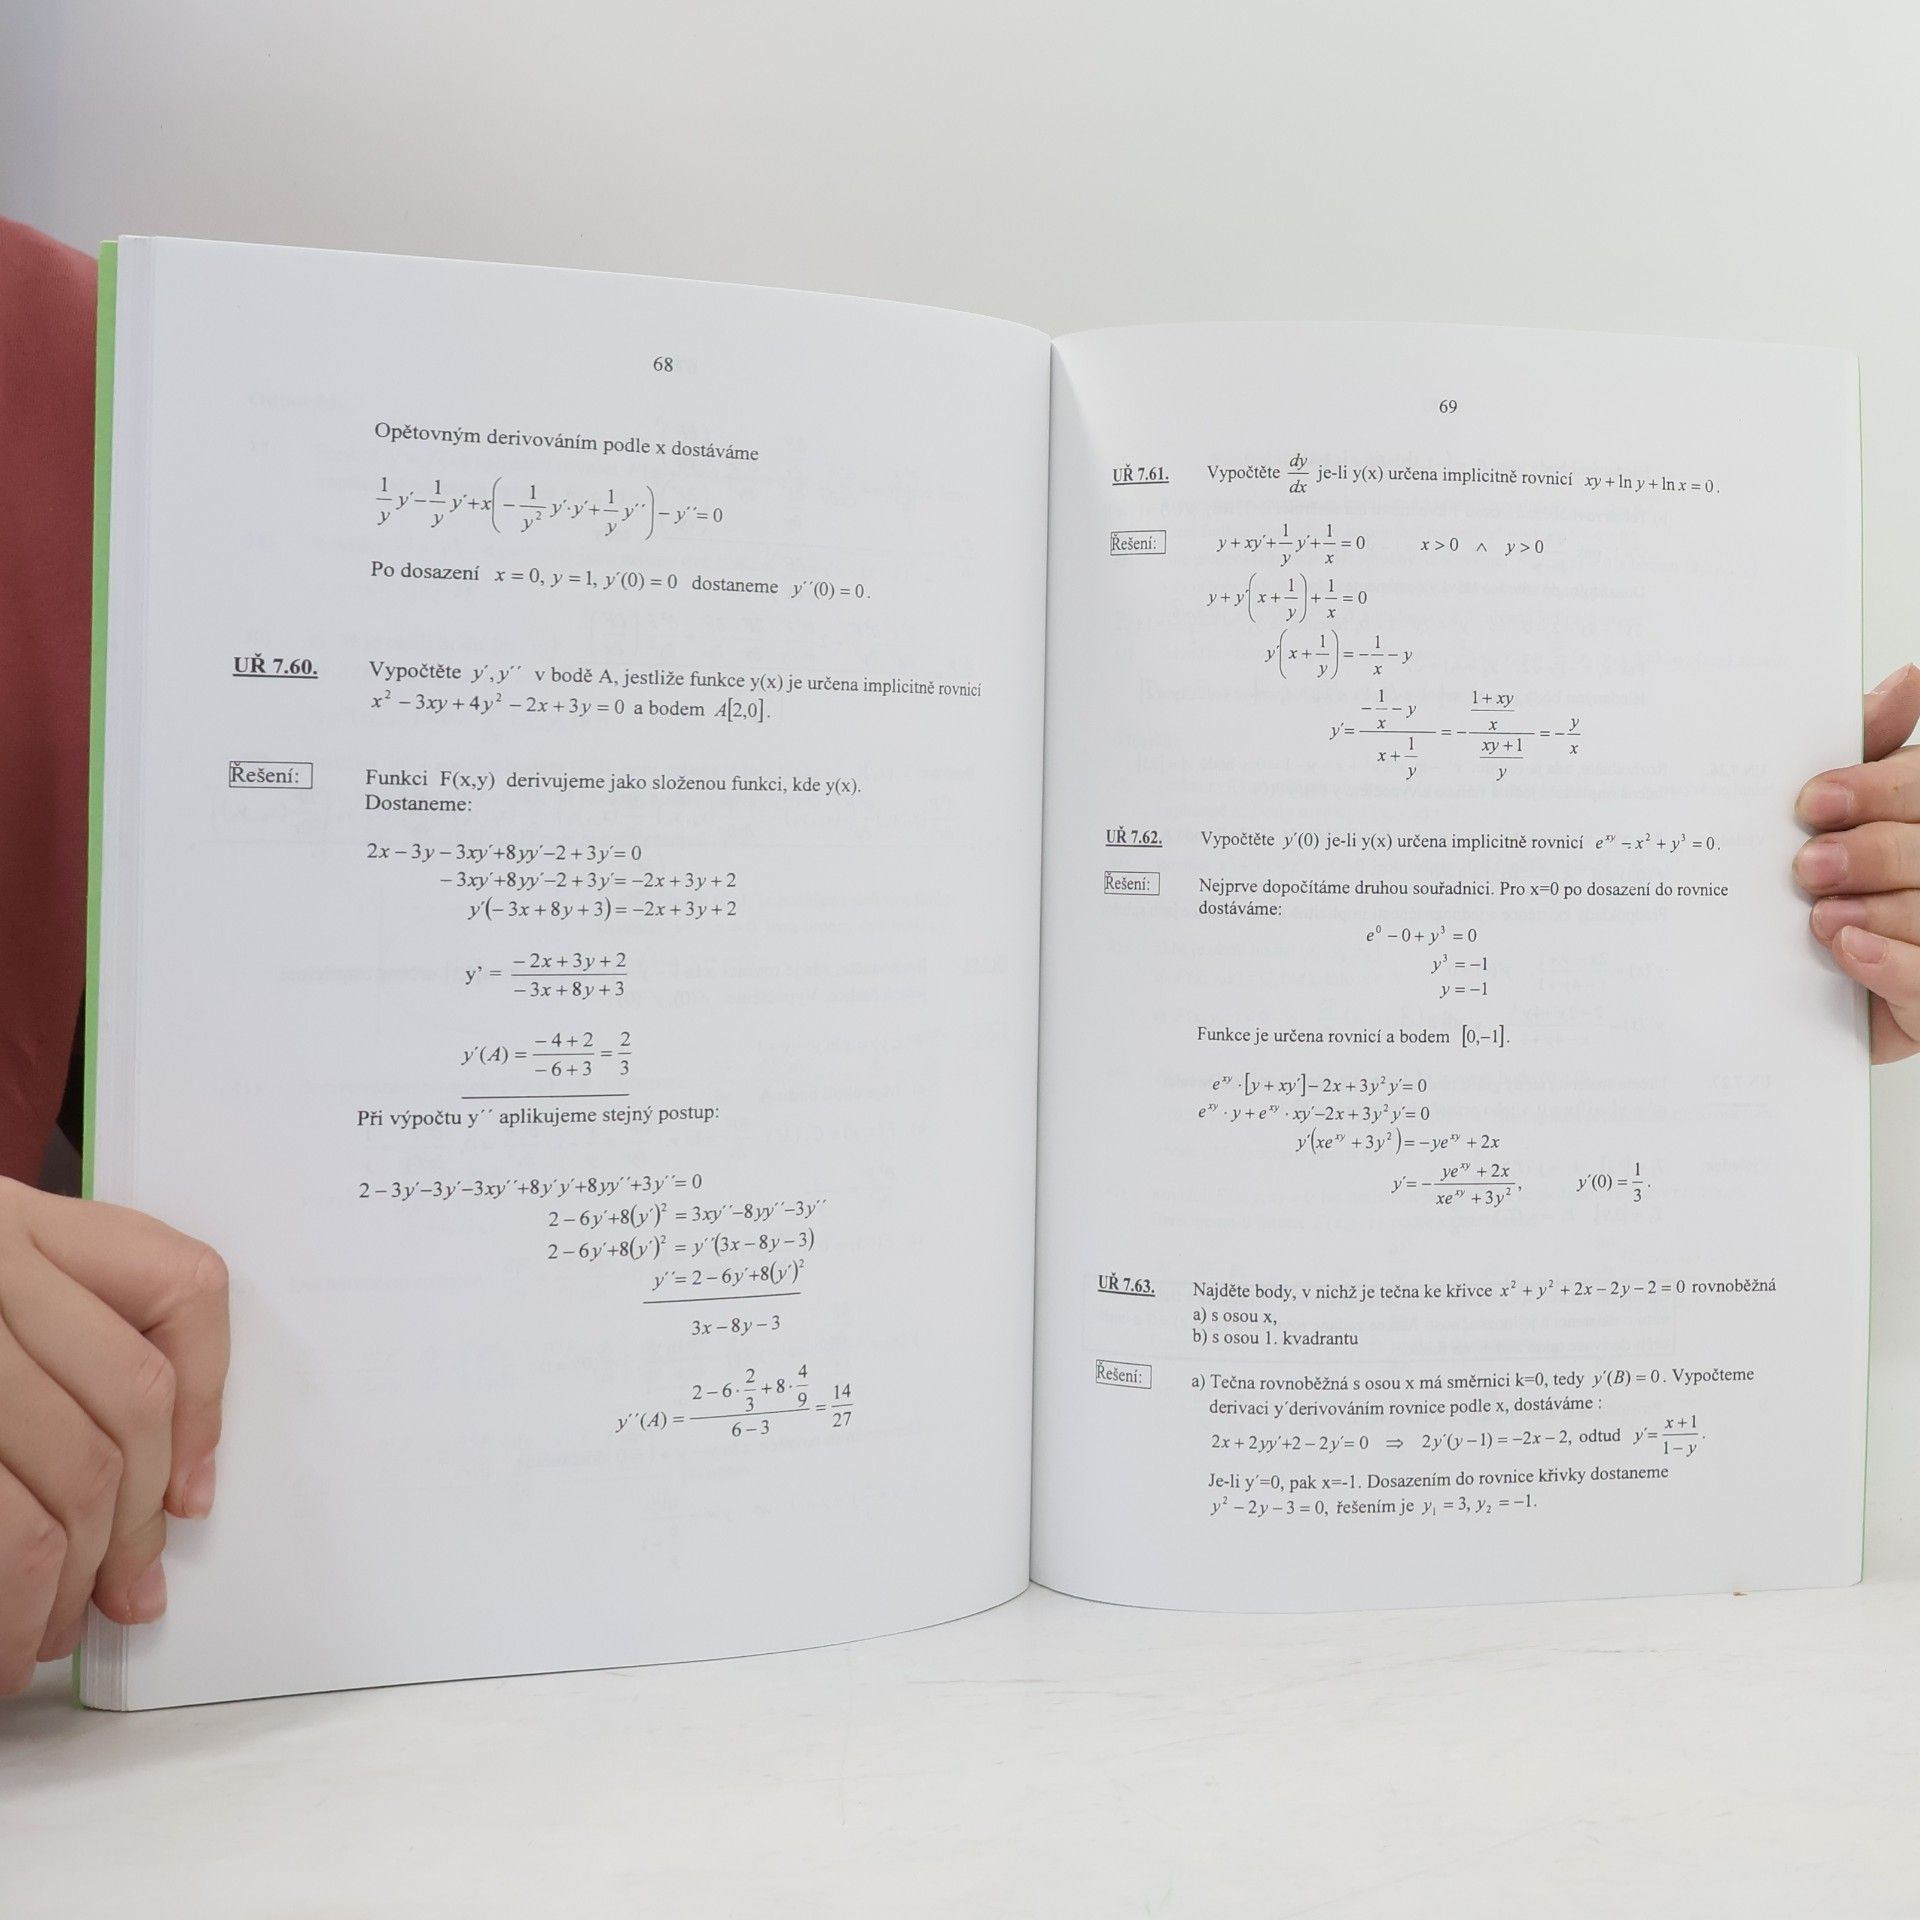 68
Opětovným derivováním podle x dostáváme
1/y y´− 1/y y´+x(− 1/y² y´·y´+ 1/y y´´) − y´´= 0
Po dosazení x = 0, y = 1, y´(0) = 0 dostaneme y´´(0) = 0.
UŘ 7.60. Vypočtěte y´, y´´ v bodě A, jestliže funkce y(x) je určena implicitně rovnicí
x² − 3xy + 4y² − 2x + 3y = 0 a bodem A[2,0].
Řešení: Funkci F(x,y) derivujeme jako složenou funkci, kde y(x).
Dostaneme:
2x − 3y − 3xy´+8yy´−2 + 3y´= 0
− 3xy´+8yy´−2 + 3y´= −2x + 3y + 2
y´(− 3x + 8y + 3) = −2x + 3y + 2
y’ = (− 2x + 3y + 2)/(− 3x + 8y + 3)
y´(A) = (− 4 + 2)/(− 6 + 3) = 2/3
Při výpočtu y´´ aplikujeme stejný postup:
2 − 3y´−3y´−3xy´´+8y´y´+8yy´´+3y´´= 0
2 − 6y´+8(y´)² = 3xy´´−8yy´´−3y´´
2 − 6y´+8(y´)² = y´´(3x − 8y − 3)
y´´= 2 − 6y´+8(y´)²
3x − 8y − 3
y´´(A) = (2 − 6·2/3 + 8·4/9)/(6 − 3) = 14/27
69
UŘ 7.61. Vypočtěte dy/dx je-li y(x) určena implicitně rovnicí xy + ln y + ln x = 0.
Řešení: y + xy´+ 1/y y´+ 1/x = 0 x > 0 ∧ y > 0
y + y´(x + 1/y) + 1/x = 0
y´(x + 1/y) = − 1/x − y
y´= (− 1/x − y)/(x + 1/y) = − ((1 + xy)/x)/((xy + 1)/y) = − y/x
UŘ 7.62. Vypočtěte y´(0) je-li y(x) určena implicitně rovnicí e^xy − x² + y³ = 0.
Řešení: Nejprve dopočítáme druhou souřadnici. Pro x=0 po dosazení do rovnice
dostáváme:
e⁰ − 0 + y³ = 0
y³ = −1
y = −1
Funkce je určena rovnicí a bodem [0,−1].
e^xy · [y + xy´] − 2x + 3y² y´= 0
e^xy · y + e^xy · xy´−2x + 3y² y´= 0
y´(xe^xy + 3y²) = −ye^xy + 2x
y´= − (ye^xy + 2x)/(xe^xy + 3y²), y´(0) = 1/3.
UŘ 7.63. Najděte body, v nichž je tečna ke křivce x² + y² + 2x − 2y − 2 = 0 rovnoběžná
a) s osou x,
b) s osou 1. kvadrantu
Řešení: a) Tečna rovnoběžná s osou x má směrnici k=0, tedy y´(B) = 0. Vypočteme
derivaci y´derivováním rovnice podle x, dostáváme :
2x + 2yy´+2 − 2y´= 0 ⇒ 2y´(y − 1) = −2x − 2, odtud y´= (x + 1)/(1 − y).
Je-li y´=0, pak x=-1. Dosazením do rovnice křivky dostaneme
y² − 2y − 3 = 0, řešením je y₁ = 3, y₂ = −1.